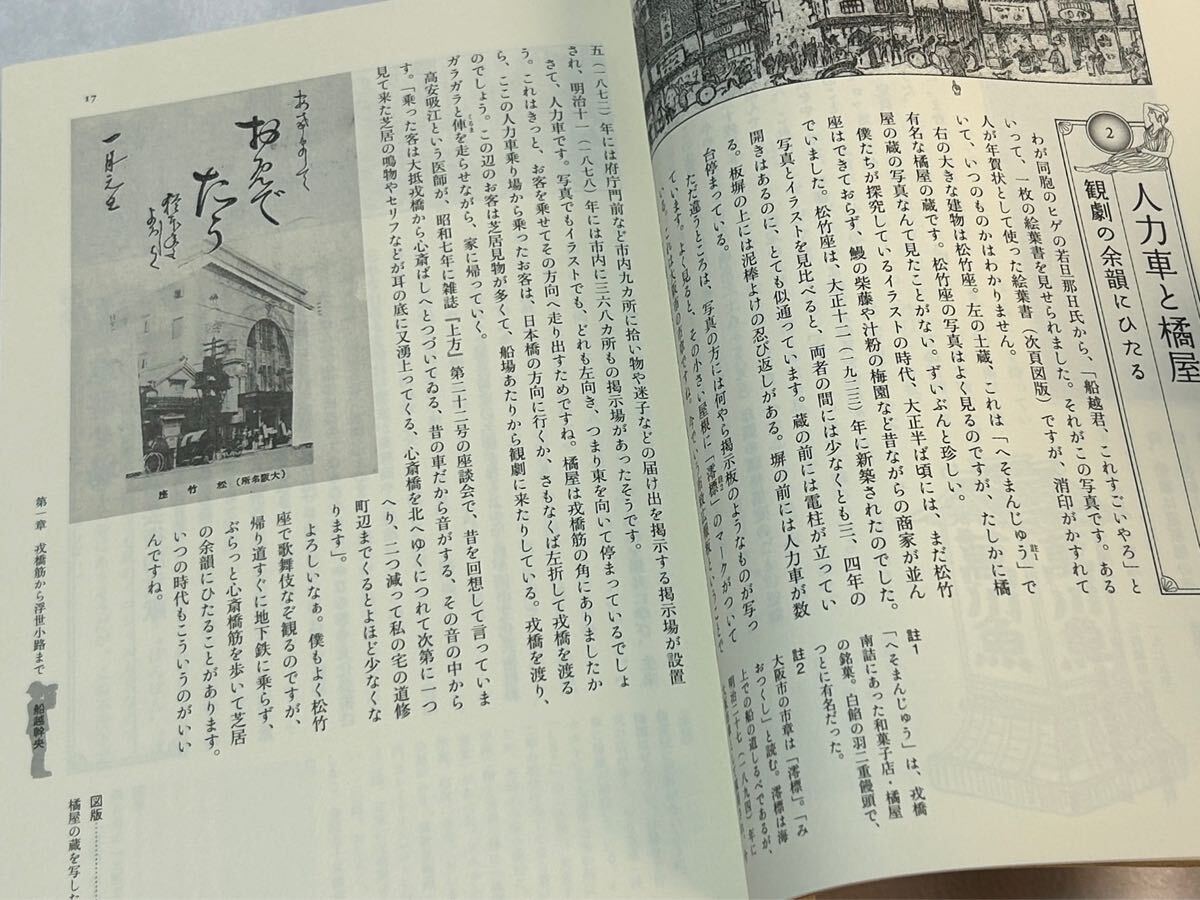 2
人力車と橘屋
観劇の余韻にひたる
わが同胞のヒゲの若旦那H氏から、「船越君、これすごいやろ」と
いって、一枚の絵葉書を見せられました。それがこの写真です。ある
人が年賀状として使った絵葉書（次頁図版）ですが、消印がかすれて
いて、いつのものかはわかりません。
右の大きな建物は松竹座。左の土蔵、これは「へそまんじゅう」註1で
有名な橘屋の蔵です。松竹座の写真はよく見るのですが、たしかに橘
屋の蔵の写真なんて見たことがない。ずいぶんと珍しい。
僕たちが探究しているイラストの時代、大正半ば頃には、まだ松竹
座はできておらず、鰻の柴藤や汁粉の梅園など昔ながらの商家が並ん
でいました。松竹座は、大正十二（一九二三）年に新築されたのでした。
写真とイラストを見比べると、両者の間には少なくとも三、四年の
開きはあるのに、とても似通っています。蔵の前には電柱が立ってい
る。板塀の上には泥棒よけの忍び返しがある。塀の前には人力車が数
台停まっている。
ただ違うところは、写真の方には何やら掲示板のようなものが写っ
ています。よく見ると、その小さい屋根に「澪標」註2のマークがついて
註1
「へそまんじゅう」は、戎橋
南詰にあった和菓子店・橘屋
の銘菓。白餡の羽二重饅頭で、
つとに有名だった。
註2
大阪市の市章は「澪標」。「み
おつくし」と読む。澪標は海
上での船の道しるべであるが、
明治二十七（一八九四）年に
五（一八七二）年には府庁門前など市内九カ所に拾い物や迷子などの届け出を掲示する掲示場が設置
され、明治十一（一八七八）年には市内に三六八カ所もの掲示場があったそうです。
さて、人力車です。写真でもイラストでも、どれも左向き、つまり東を向いて停まっているでしょ
う。これはきっと、お客を乗せてその方向へ走り出すためですね。橘屋は戎橋筋の角にありましたか
ら、ここの人力車乗り場から乗ったお客は、日本橋の方向に行くか、さもなくば左折して戎橋を渡る
のでしょう。この辺のお客は芝居見物が多くて、船場あたりから観劇に来たりしている。戎橋を渡り、
ガラガラと俥くるまを走らせながら、家に帰っていく。
高安吸江という医師が、昭和七年に雑誌『上方』第二十二号の座談会で、昔を回想して言っていま
す。「乗った客は大抵戎橋から心斎ばしへとつづいてゐる、昔の車だから音がする、その音の中から
見て来た芝居の鳴物やセリフなどが耳の底に又湧上つてくる、心斎橋を北へゆくにつれて次第に一つ
へり、二つ減つて私の宅の道修
町辺までくるとよほど少なくな
ります」。
よろしいなぁ。僕もよく松竹
座で歌舞伎なぞ観るのですが、
帰り道すぐに地下鉄に乗らず、
ぶらっと心斎橋筋を歩いて芝居
の余韻にひたることがあります。
いつの時代もこういうのがいい
んですね。
おめで
たう
一月元旦
（大阪名所）松竹座
17
第一章 戎橋筋から浮世小路まで
船越幹央
図版
橘屋の蔵を写した